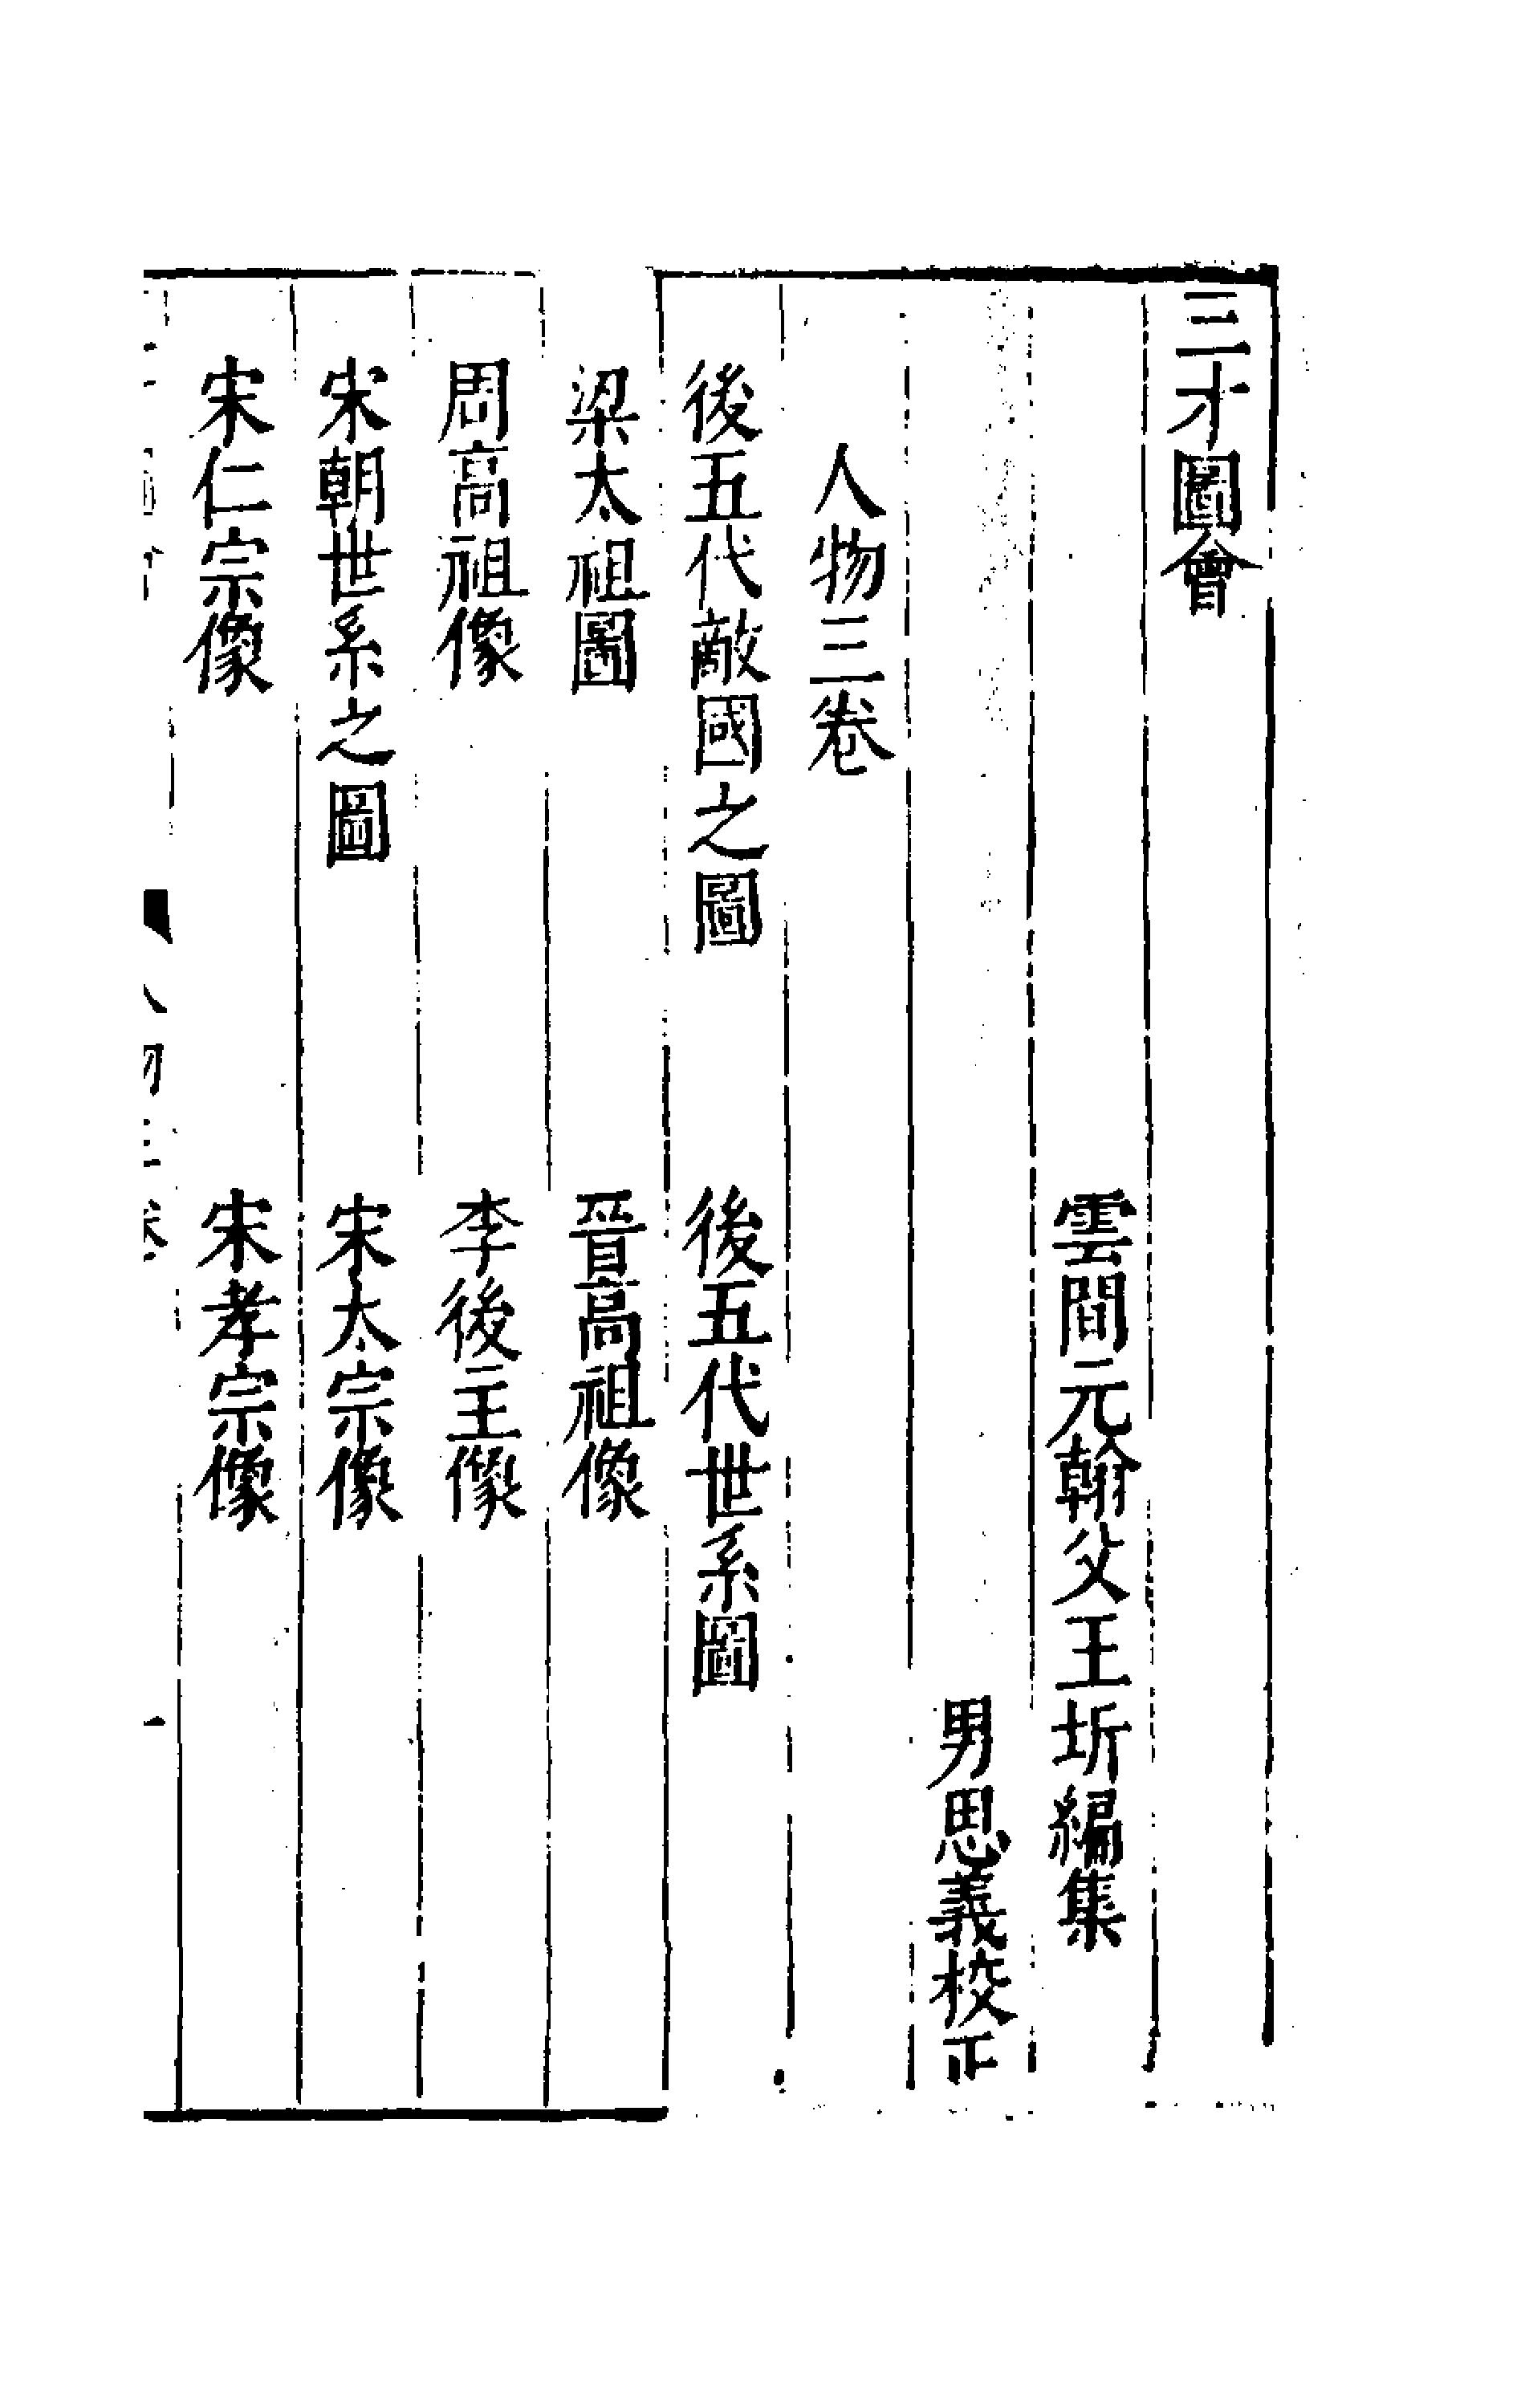 三才圖會
雲間元翰父王圻編集
男思義校正
人物三卷
後五代敵國之圖　後五代世系圖
梁太祖圖　晉高祖像
周高祖像　李後主像
宋朝世系之圖　宋太宗像
宋仁宗像　宋孝宗像